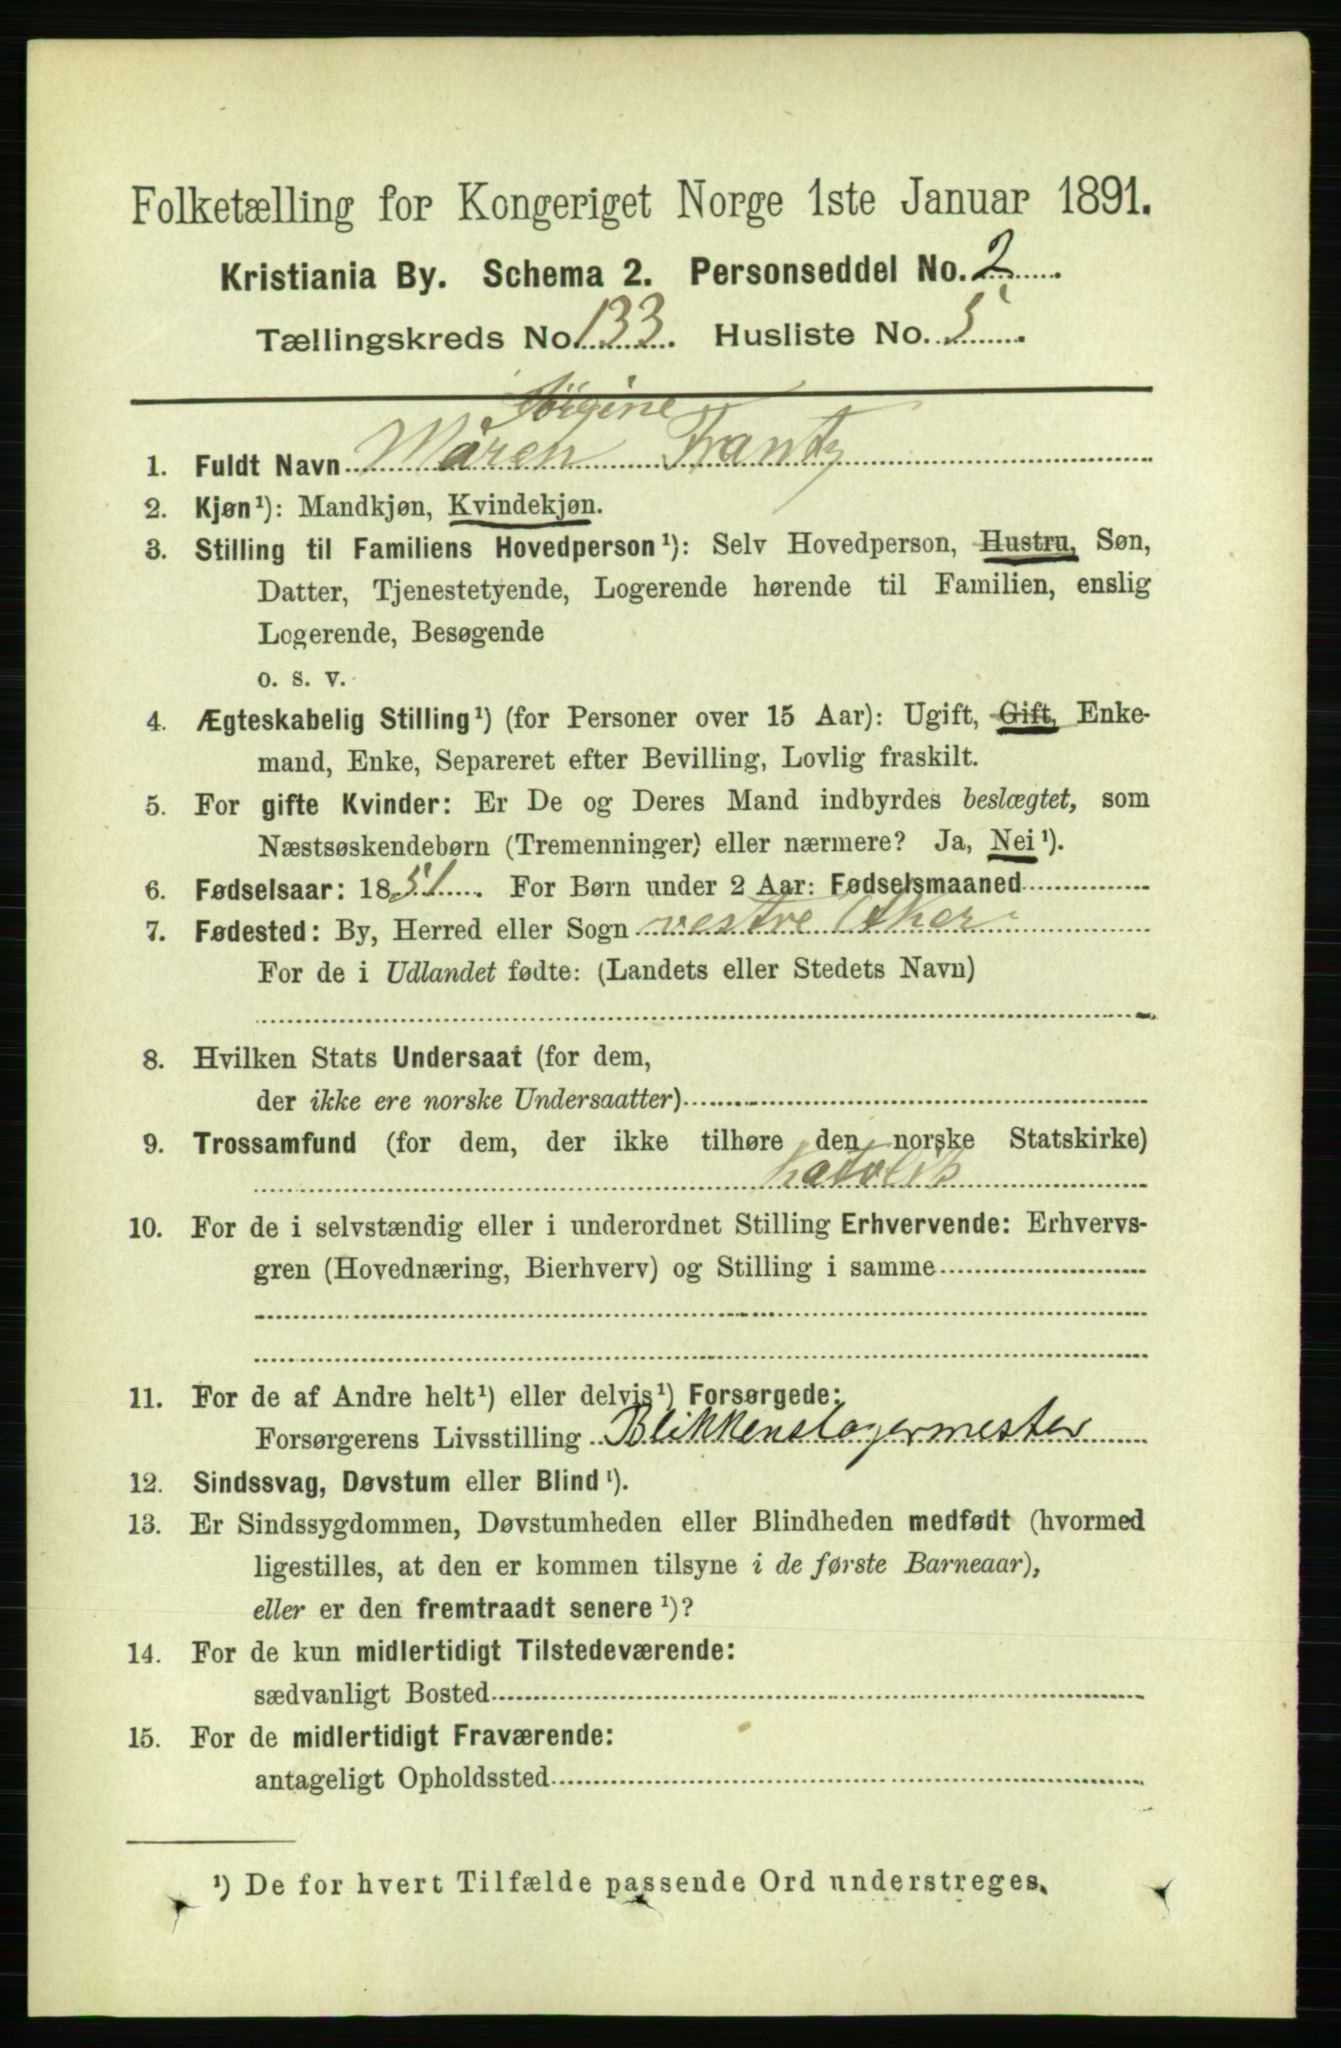 Folketælling for Kongeriget Norge 1ste Januar 1891.
Kristiania By. Schema 2. Personseddel No. 2
Tællingskreds No. 133. Husliste No. 5.
Jørgine
1. Fuldt Navn Maren Frantz
2. Kjøn¹): Mandkjøn, Kvindekjøn.
3. Stilling til Familiens Hovedperson¹): Selv Hovedperson, Hustru, Søn,
Datter, Tjenestetyende, Logerende hørende til Familien, enslig
Logerende, Besøgende
o. s. v.
4. Ægteskabelig Stilling¹) (for Personer over 15 Aar): Ugift, Gift, Enke-
mand, Enke, Separeret efter Bevilling, Lovlig fraskilt.
5. For gifte Kvinder: Er De og Deres Mand indbyrdes beslægtet, som
Næstsøskendebørn (Tremenninger) eller nærmere? Ja, Nei¹).
6. Fødselsaar: 1851. For Børn under 2 Aar: Fødselsmaaned
7. Fødested: By, Herred eller Sogn vestre Aker
For de i Udlandet fødte: (Landets eller Stedets Navn)
8. Hvilken Stats Undersaat (for dem,
der ikke ere norske Undersaatter)
9. Trossamfund (for dem, der ikke tilhøre den norske Statskirke)
katolik
10. For de i selvstændig eller i underordnet Stilling Erhvervende: Erhvervs-
gren (Hovednæring, Bierhverv) og Stilling i samme
11. For de af Andre helt¹) eller delvis¹) Forsørgede:
Forsørgerens Livsstilling Blikkenslagermester
12. Sindssvag, Døvstum eller Blind¹).
13. Er Sindssygdommen, Døvstumheden eller Blindheden medfødt (hvormed
ligestilles, at den er kommen tilsyne i de første Barneaar),
eller er den fremtraadt senere¹)?
14. For de kun midlertidigt Tilstedeværende:
sædvanligt Bosted
15. For de midlertidigt Fraværende:
antageligt Opholdssted
¹) De for hvert Tilfælde passende Ord understreges.